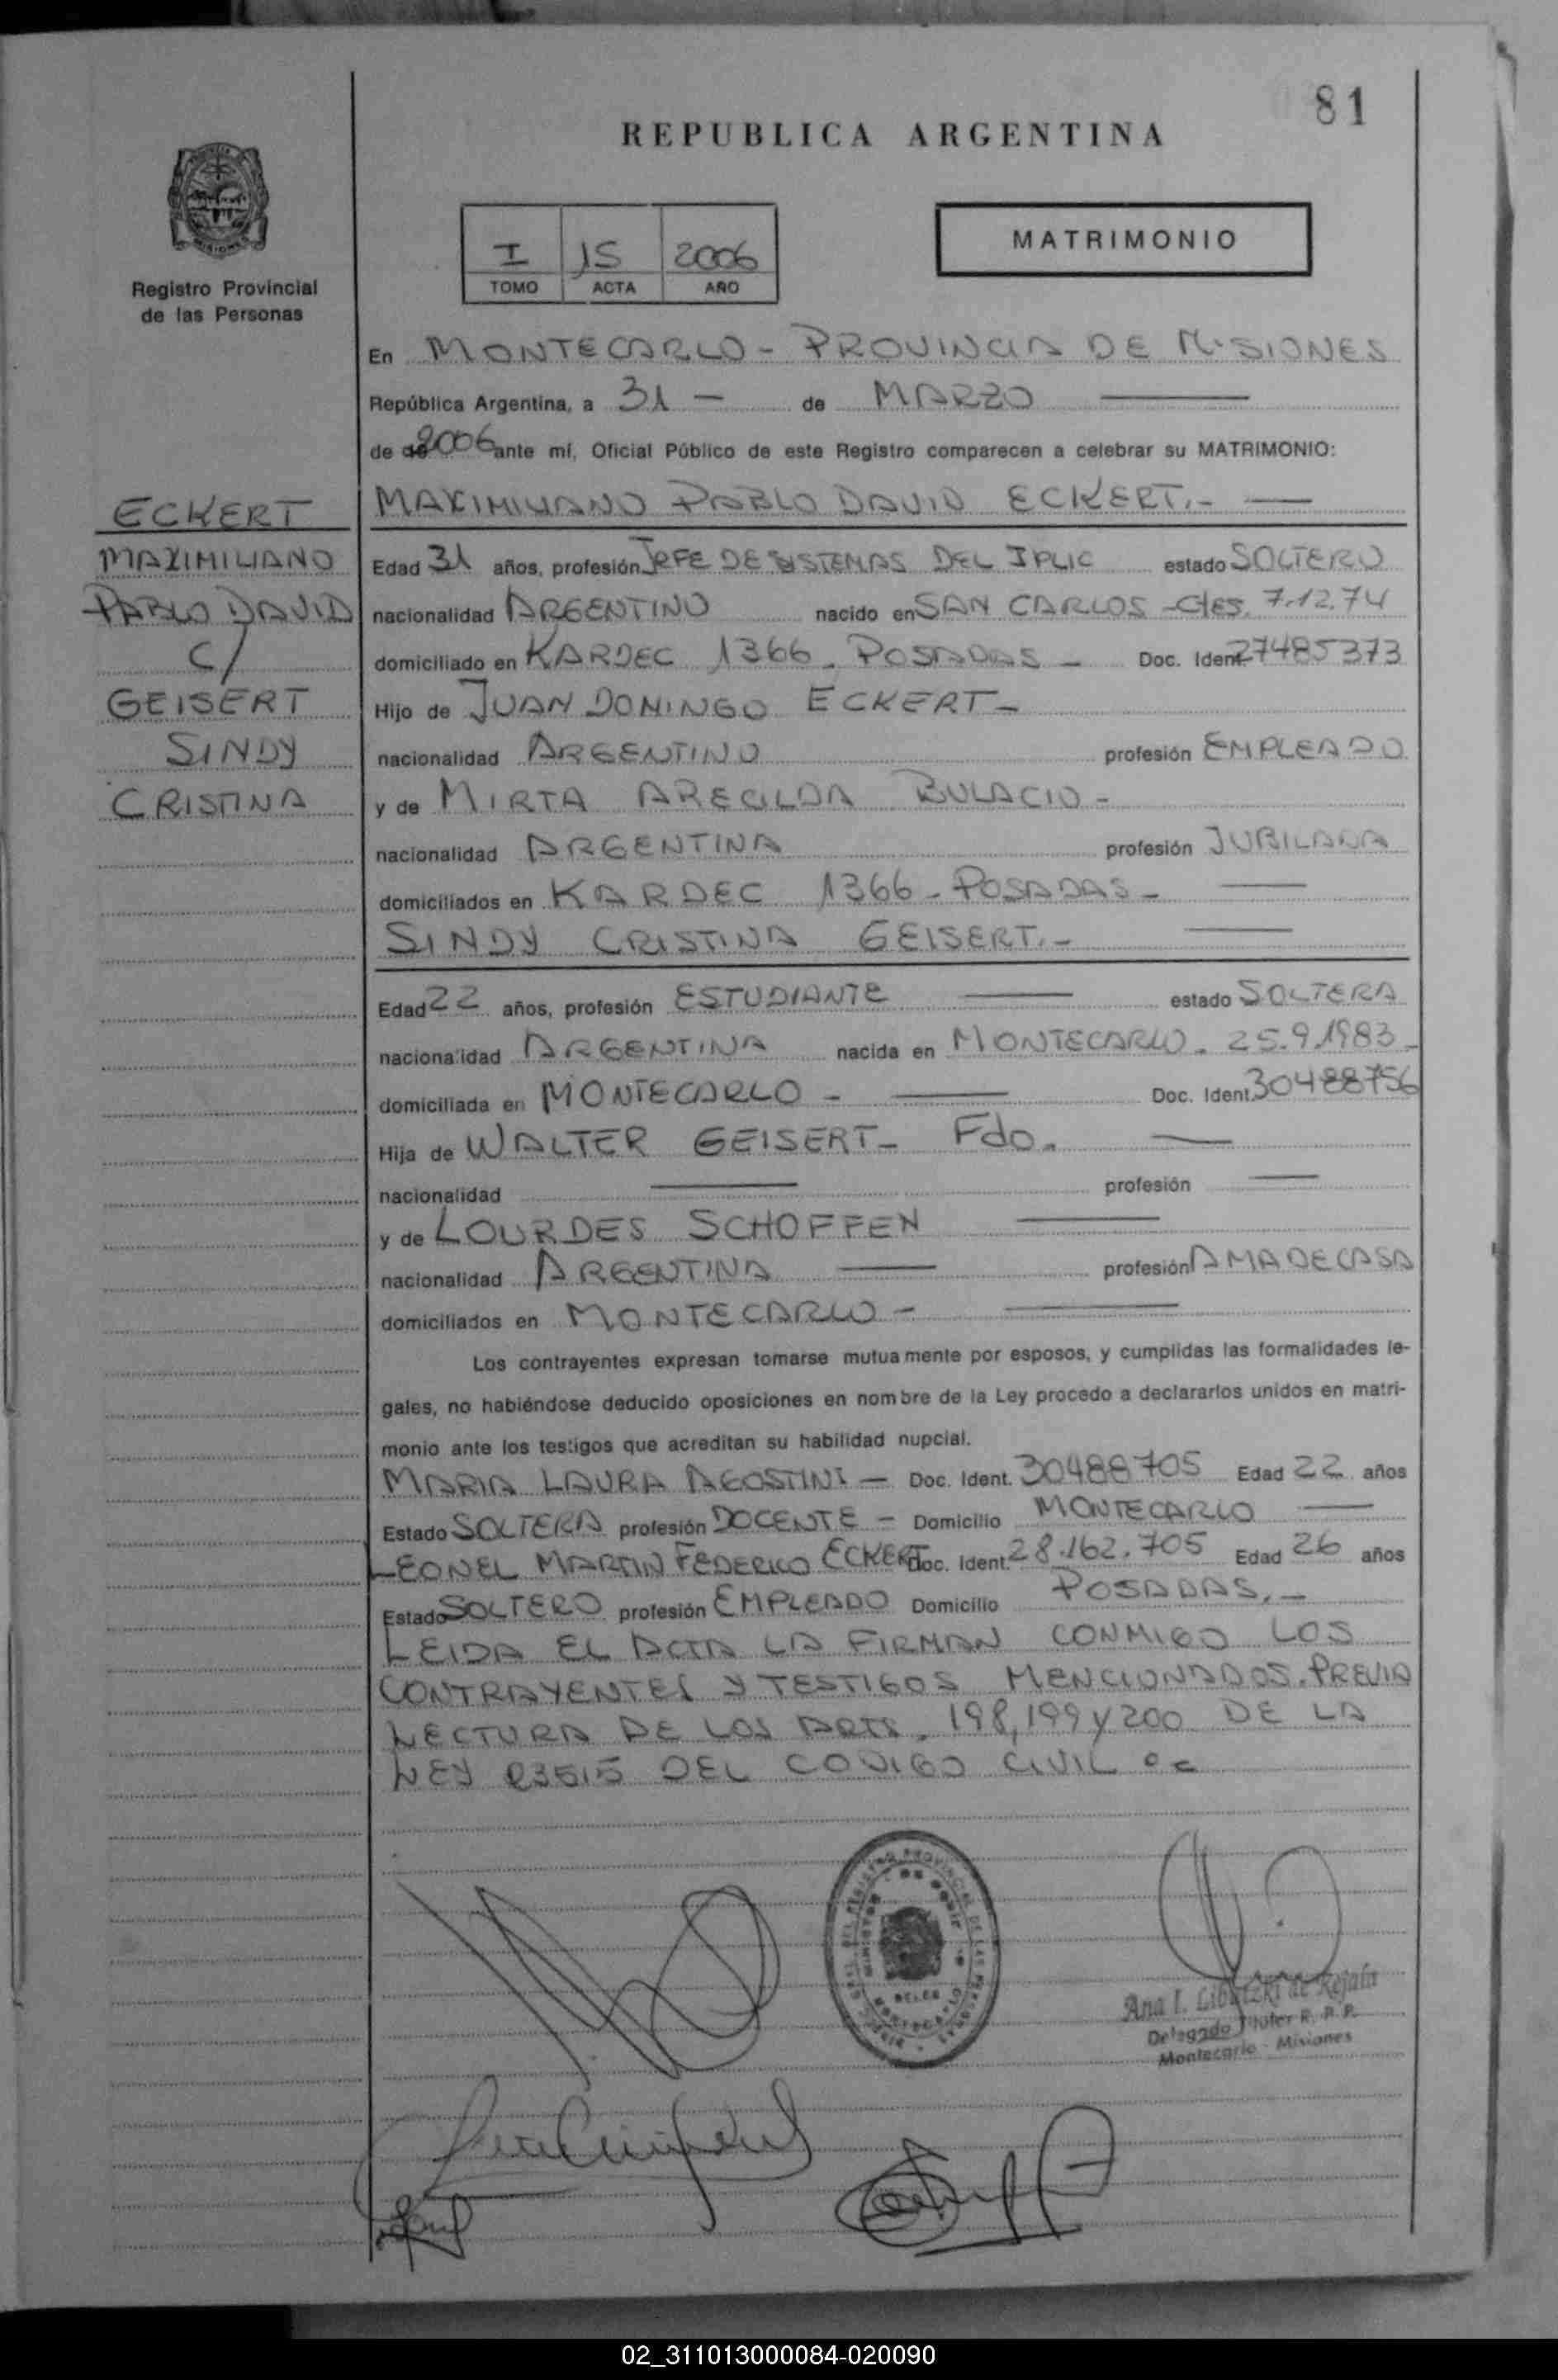 81
REPUBLICA ARGENTINA
I 15 2006
TOMO ACTA AÑO
MATRIMONIO
Registro Provincial
de las Personas
ECKERT
MAXIMILIANO
PABLO DAVID
C/
GEISERT
SINDY
CRISTINA
En MONTECARLO - PROVINCIA DE MISIONES
República Argentina, a 31 - de MARZO
de 2006 ante mí, Oficial Público de este Registro comparecen a celebrar su MATRIMONIO:
MAXIMILIANO PABLO DAVID ECKERT.-
Edad 31 años, profesión JEFE DE SISTEMAS DEL IPLIC estado SOLTERO
nacionalidad ARGENTINO nacido en SAN CARLOS - Ctes. 7.12.74
domiciliado en KARDEC 1366 - POSADAS - Doc. Ident 27485373
Hijo de JUAN DOMINGO ECKERT -
nacionalidad ARGENTINO profesión EMPLEADO
y de MIRTA ARECILDA BULACIO -
nacionalidad ARGENTINA profesión JUBILADA
domiciliados en KARDEC 1366 - POSADAS -
SINDY CRISTINA GEISERT.-
Edad 22 años, profesión ESTUDIANTE estado SOLTERA
nacionalidad ARGENTINA nacida en MONTECARLO - 25.9.1983 -
domiciliada en MONTECARLO - Doc. Ident. 30488756
Hija de WALTER GEISERT - Fdo.
nacionalidad profesión
y de LOURDES SCHOFFEN
nacionalidad ARGENTINA profesión AMA DE CASA
domiciliados en MONTECARLO -
Los contrayentes expresan tomarse mutuamente por esposos, y cumplidas las formalidades le-
gales, no habiéndose deducido oposiciones en nombre de la Ley procedo a declararlos unidos en matri-
monio ante los testigos que acreditan su habilidad nupcial.
MARIA LAURA AGOSTINI - Doc. Ident. 30488705 Edad 22 años
Estado SOLTERA profesión DOCENTE - Domicilio MONTECARLO
LEONEL MARTIN FEDERICO ECKERT Doc. Ident. 28.162.705 Edad 26 años
Estado SOLTERO profesión EMPLEADO Domicilio POSADAS.-
LEIDA EL ACTA LA FIRMAN CONMIGO LOS
CONTRAYENTES Y TESTIGOS MENCIONADOS. PREVIA
LECTURA DE LOS ARTS. 198, 199 y 200 DE LA
LEY 23515 DEL CODIGO CIVIL
Ana I. de
Delegado Titular R. P. P.
Montecarlo - Misiones
02_311013000084-020090